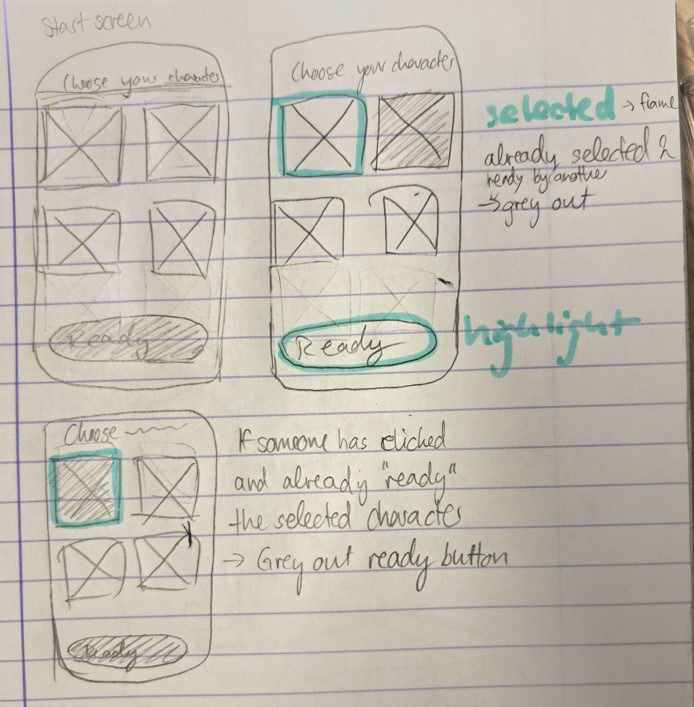 Start screen
Choose your character
Ready
Choose your character
Ready
selected → frame
already selected &
ready by another
→ grey out
highlight
Choose
Ready
If someone has clicked
and already "ready"
the selected character
→ Grey out ready button